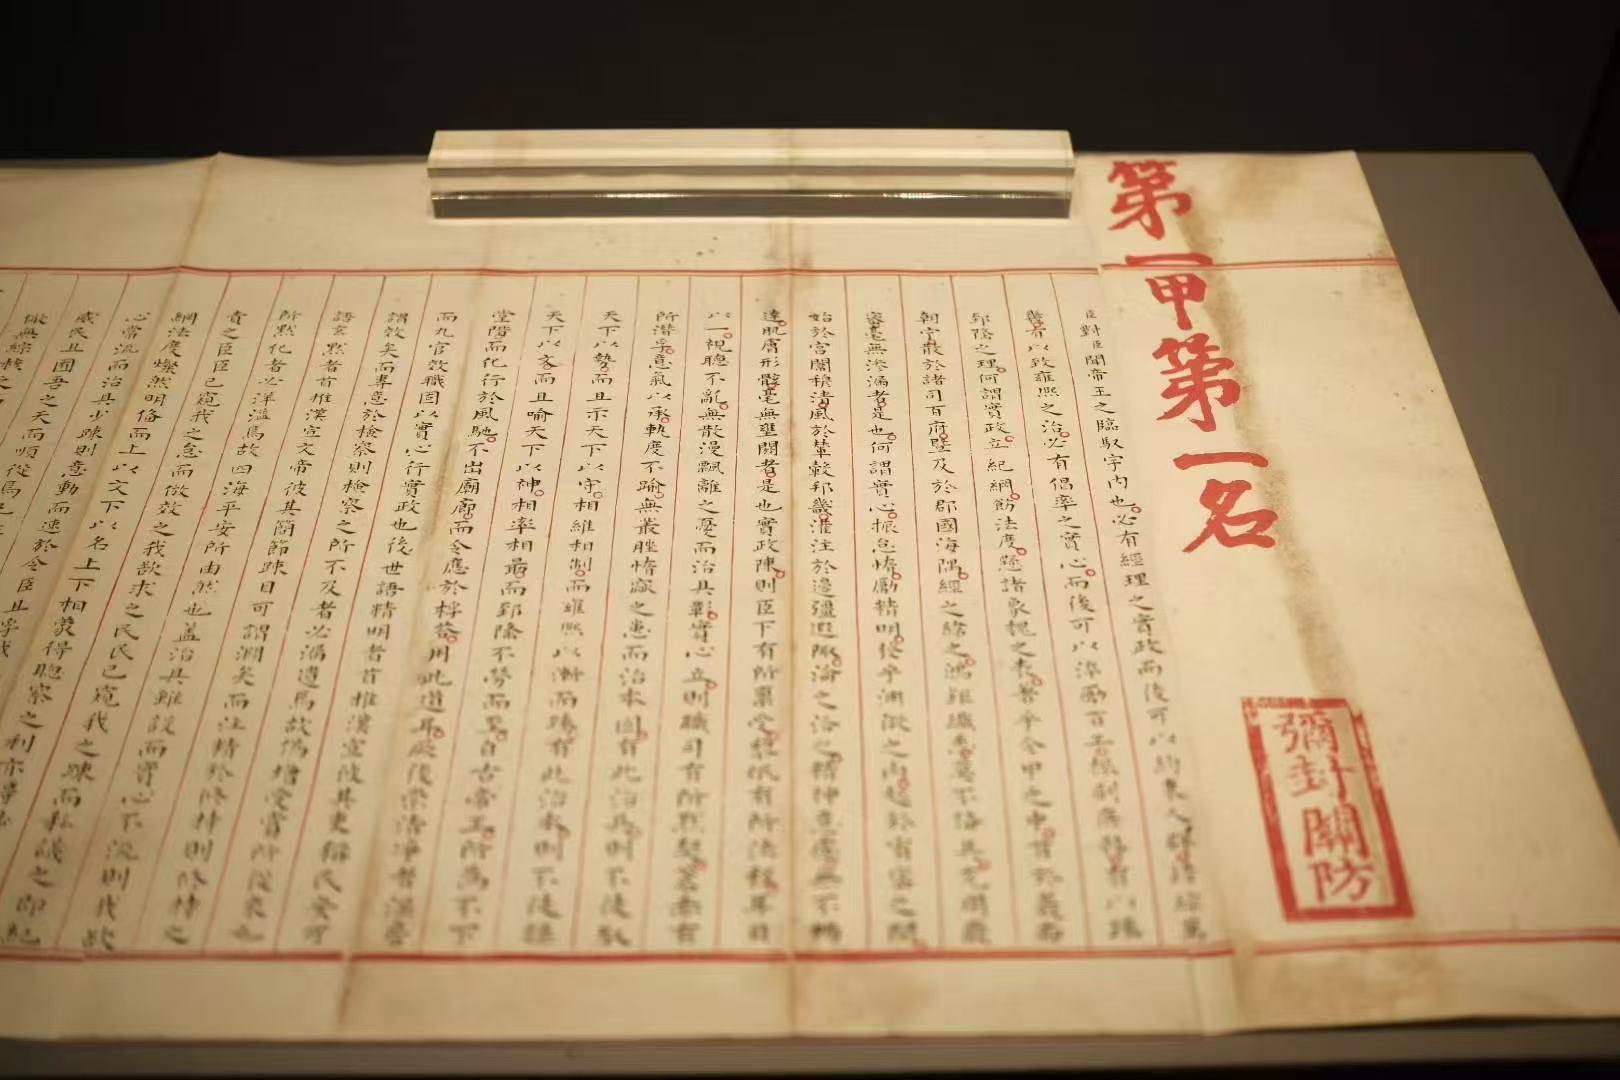 第一甲第一名
彌封關防
臣對臣聞帝王之臨馭宇內也必有經理之實政而後可以約束人群錯綜萬
幾有以致雍熙之治必有倡率之實心而後可以淬勵百工振刷庶務有以臻
郅隆之理何謂實政立紀綱飭法度懸諸象魏之表著乎令甲之中首於巖廊
朝宁散於諸司百府暨及於郡國海隅經之緯之鴻鉅纖悉莫不備具充周嚴
密毫無滲漏者是也何謂實心振怠惰勵精明發乎淵微之內起於宥密之間
始於宮闈穆清風於輦轂邦畿灌注於邊疆遐陬淪之洽之精神意慮無不暢
達肌膚形骸毫無壅閼者是也實政陳則臣下有所稟受黎氓有所法程耳目
以一視聽不亂無散漫飄離之憂而治具彰實心立則職司有所默契蒼赤有
所潛孚意氣以承軌度不踰無叢脞惰窳之患而治本固有此治具則不徒馭
天下以勢而且示天下以守相維相制而雍熙以漸而臻有此治本則不徒操
天下以文而且喻天下以神相率相勖而郅隆不勞而至自古帝王所為不下
堂階而化行於風馳不出廟廊而令應於桴答用此道耳厥後崇清淨者深居
而九官效職固以實心行實政也後世語精明者首推漢宣彼其吏稱民安可
謂效矣而專意於檢察則檢察之所不及者必漏遺焉故偽增受賞所從來也
語玄默者首推漢文帝彼其簡節疎目可謂濶矣而注精於修持則修持之
所默化者必洋溢焉故四海平安所由然也蓋治具雖設而實心不流則我欲
責之臣臣已窺我之怠而倣效之我欲求之民民已窺我之疎而私議之即紀
綱法度燦然明備而上以文下以名上下相蒙得聰察之利亦得
心常流而治具少疎則意動而速於令臣且孚我
威民且囿吾之天而順從焉
倣無綜核之名